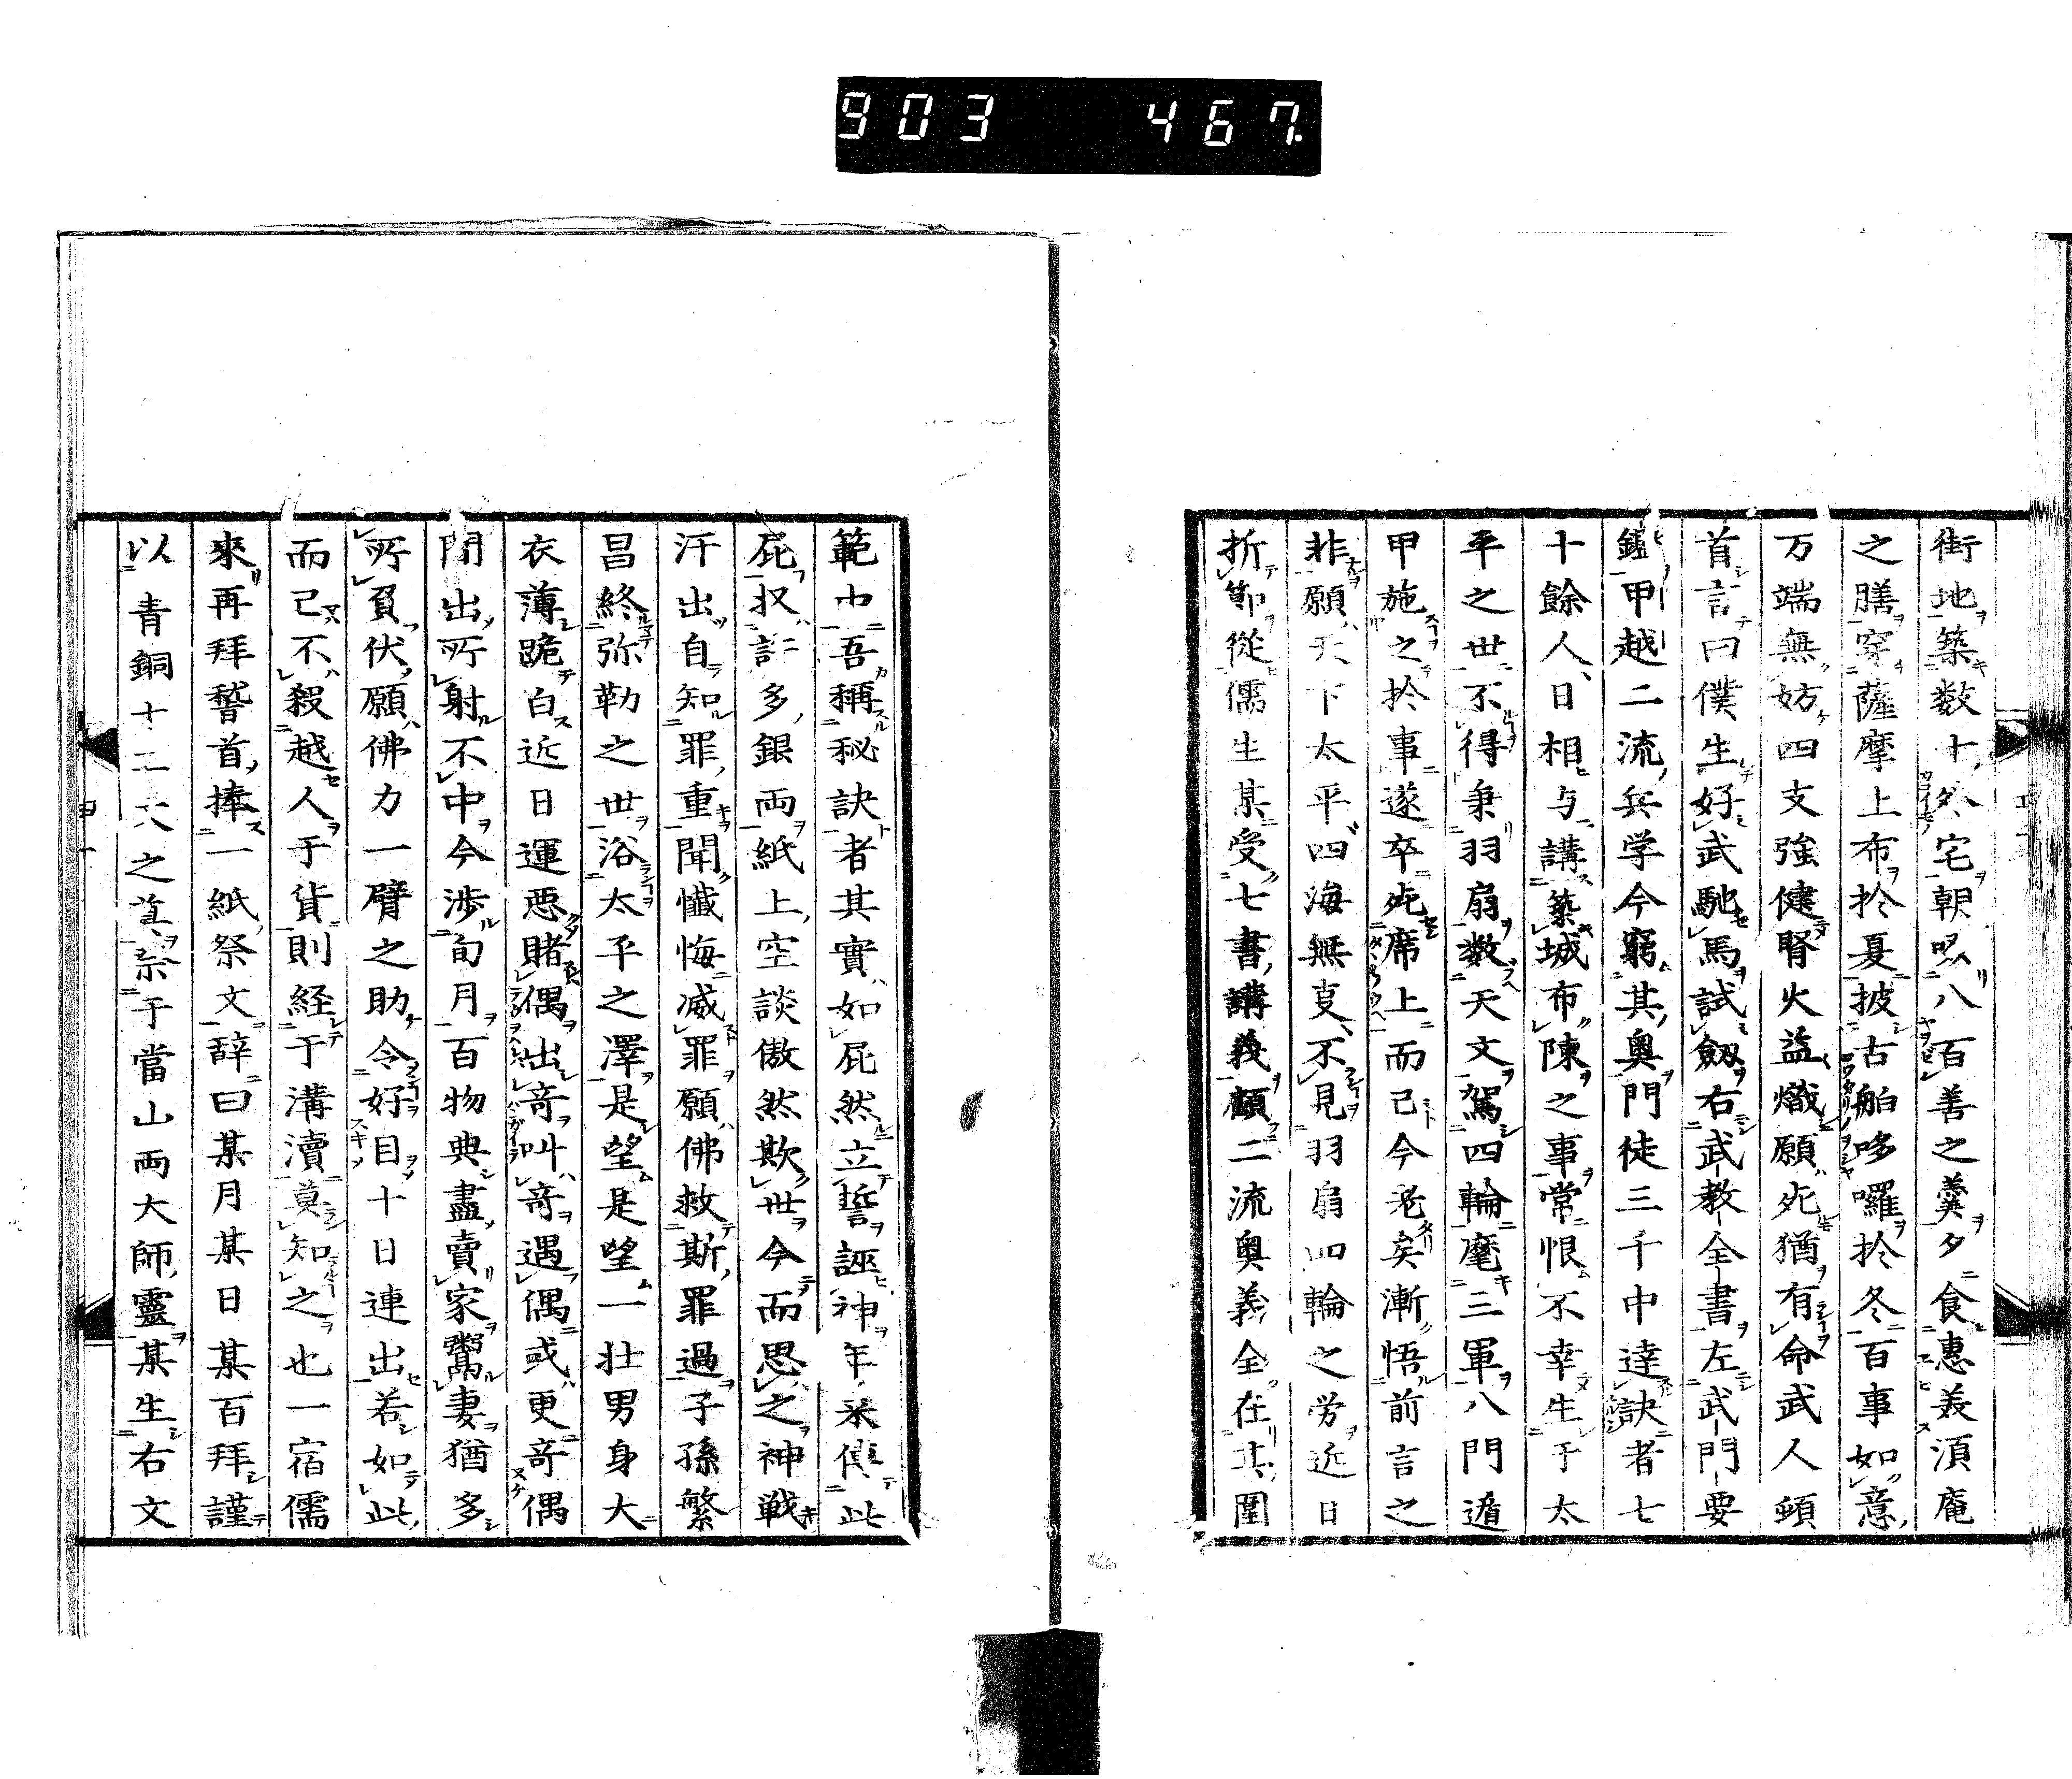 903 467
街地築数十外宅朝以八百善之羹夕食惠美須庵
之膳穿薩摩上布於夏披古舶哆囉於冬百事如意
万端無妨四支強健腎火益熾願死猶有命武人頓
首言曰僕生好武馳馬試劔右武教全書左武門要
鑑甲越二流兵学今窮其奥門徒三千中達訣者七
十餘人日相与講築城布陳之事常恨不幸生于太
平之世不得秉羽扇数天文駕四輪麾三軍八門遁
甲施之於事遂卒死席上而已今老矣漸悟前言之
非願天下太平四海無支不見羽扇四輪之労近日
折節從儒生某受七書講義顧二流奥義全在其圍
範中吾稱秘訣者其實如屁然立誓誣神年来傳此
屁扠許多銀両紙上空談傲然欺世今而思之神戦
汗出自知罪重聞懺悔滅罪願佛救斯罪過子孫繁
昌終弥勒之世浴太平之澤是望是望一壮男身大
衣薄跪白近日運悪賭偶出竒叫竒遇偶或更竒偶
間出所射不中今渉旬月百物典盡賣家鬻妻猶多
所負伏願佛力一臂之助令好目十日連出若如此
而已不殺越人于貨則経于溝瀆莫知之也一宿儒
來再拜稽首捧一紙祭文辞曰某月某日某百拜謹
以青銅十二文之奠祭于當山両大師靈某生右文